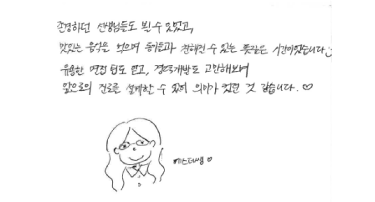 존경하던 선생님들도 뵐 수 있었고,
맛있는 음식을 먹으며 동기들과 친해질 수 있는 뜻깊은 시간이었습니다.
유용한 면접 팁도 얻고, 경력개발도 고민해보며
앞으로의 진로를 설계할 수 있어 의미가 있던 것 같습니다. ♡
에스더쌤 ♡